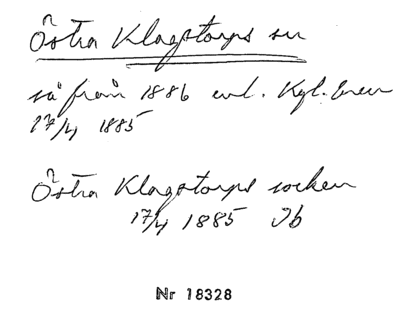 Östra Klagstorps sn
så från 1886 enl. Kgl. brev
17/4 1885
Östra Klagstorps socken
17/4 1885 Jb
Nr 18328